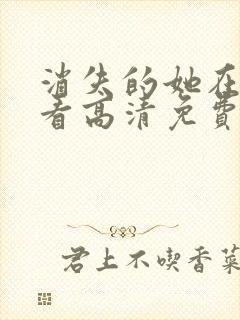 消失的她在
看高清免費
君上不喫香菜